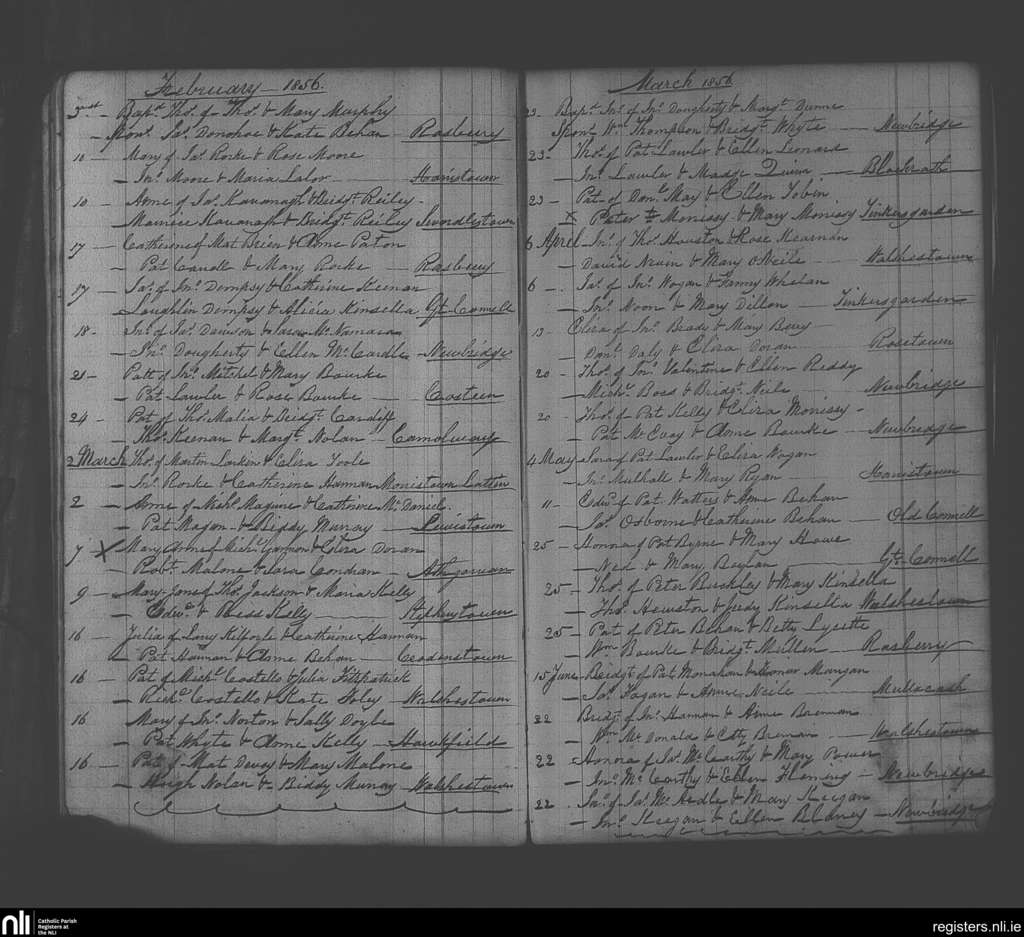 February - 1856.
3rd - Bapt. Thos. of Thos. & Mary Murphy
Spons. Jas. Donohoe & Kate Behan - Rosberry
10 - Mary of Jas. Rorke & Rose Moore
- Jno. Moore & Maria Lalor - Hoaistown
10 - Anne of Jas. Kavanagh & Bridgt. Reiley -
Maurice Kavanagh & Bridgt. Reiley Swordlestown
17 - Catherine of Mat Brien & Anne Paton
- Pat Candle & Mary Rorke - Rosberry
17 - Jas. of Jno. Dempsy & Catherine Keenan
Loughlin Dempsy & Alicia Kinsella Gt. Connell
18 - Jno. of Jas. Dawson & Sarah Mc. Namara
- Jno. Dougherty & Ellen Mc. Cardle - Newbridge
21 - Patk of Jno. Mitchel & Mary Bourke
- Pat Lawler & Rose Bourke - Crosteen
24 - Pat of Thos. Malia & Bridgt. Cardiff
- Thos. Keenan & Margt. Nolan - Camolway
2 March Thos. of Martin Larkin & Eliza Toole
- Jno. Rorke & Catherine Hannan Moristown Lattin
2 - Anne of Michl. Maguire & Cathrine Mc. Daniel
- Pat Magan & Biddy Murray - Lewistown
7 X Mary Anne of Michl. Gannon & Eliza Doran
- Robt. Malone & Sara Condran - Athgarvan
9 - Mary Jane of Thos. Jackson & Maria Kelly
- Edwd. & Bless Kelly - Stephenstown
16 - Julia of Larry Kilfoyle & Catherine Hannan
- Pat Hannan & Anne Behan - Crodenstown
16 - Pat of Michl. Costello & Julia Fitzpatrick
- Richd. Costello & Kate Foley - Walshestown
16 - Mary of Jno. Norton & Sally Doyle
- Pat Whyte & Anne Kelly - Hawkfield
16 - Pat of Mat Davey & Mary Malone
- Hugh Nolan & Biddy Murray - Walshestown
March 1856
23 - Bapt. Jno. of Jno. Dougherty & Margt. Dunne
Spons. Wm. Thompson & Bridgt. Whyte - Newbridge
23 - Thos. of Pat Lawler & Ellen Leonard
- Jno. Lawler & Madge Quinn - Blackrath
23 - Pat of Danl. May & Ellen Tobin
X Peter Morrissy & Mary Morrissy Tinkersgarden
6 April - Jno. of Thos. Houston & Rose Kearnan
- David Nevin & Mary O'Neile - Walshestown
6 - Jas. of Jno. Hogan & Fanny Whelan
- Jno. Moon & Mary Dillon - Tinkersgarden
13 - Eliza of Jno. Brady & Mary Berry
- Danl. Daly & Eliza Doran - Rosetown
20 - Thos. of Jno. Valentine & Ellen Reddy
- Michl. Boss & Bridgt. Neile - Newbridge
20 - Thos. of Pat Kelly & Eliza Morrissy -
- Pat Mc Evoy & Anne Bourke - Newbridge
4 May - Sara of Pat Lawler & Eliza Hogan
- Jno. Mulhall & Mary Ryan - Harristown
11 - Edwd. of Pat Watters & Anne Behan
- Jas. Osborne & Catherine Behan - Old Connell
25 - Honora of Pat Byrne & Mary Howe
- Ned & Mary Boylan - Gt. Connell
25 - Thos. of Peter Buckley & Mary Kinsella
- Thos. Hewston & Judy Kinsella Walshestown
25 - Pat of Peter Behan & Betty Lysette
- Wm Bourke & Bridgt. Mullen - Rosberry
15 June - Bridgt of Pat Monahan & Honor Mangan
- Jas. Fagan & Anne Neile - Mullacash
22 Bridgt. of Jno. Hannan & Anne Brennan
- Wm. Mc Donald & Catty Brenan - Walshestown
22 - Honora of Jas. Mc Carthy & Mary Power
- Jno. Mc Carthy & Ellen Fleming - Newbridge
22 - Jno. of Jas. Mc Ardle & Mary Keegan
- Jno. Keegan & Ellen Bldney - Newbridge
nli
Catholic Parish
Registers at
the NLI
registers.nli.ie